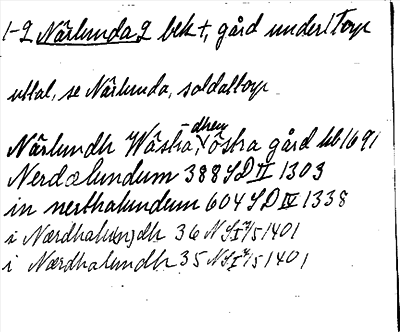 1-2 Närlunda 2 bebt, gård under 1 Torp
uttal, se Närlunda, soldattorp
Närlundh Wästra, -dhen östra gård bb 1691
Nerdælundum 388 SD II 1303
in nerthalundum 604 SD IV 1338
i Nærdhalu(n)dh 36 NS I 2/5 1401
i Nærdhalundh 35 NS I 2/5 1401